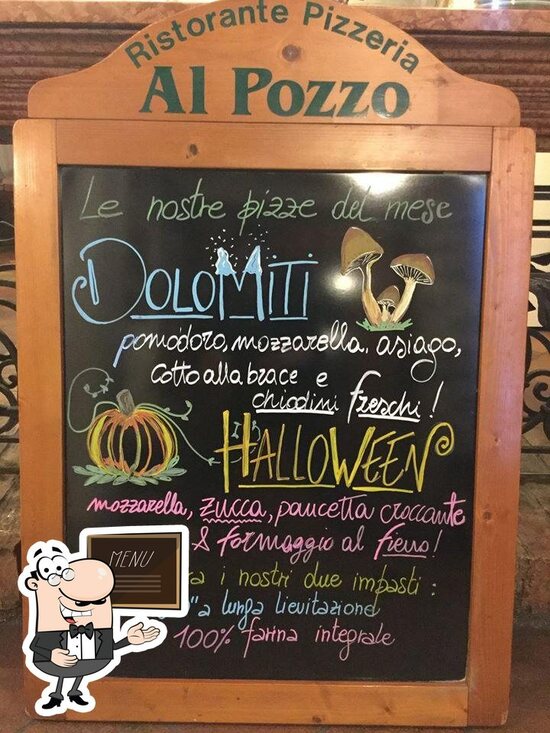 Ristorante Pizzeria
Al Pozzo
Le nostre pizze del mese
DOLOMITI
pomodoro, mozzarella, asiago,
cotto alla brace e
chiodini freschi!
HALLOWEEN
mozzarella, zucca, pancetta croccante
& formaggio al fieno!
i nostri due impasti:
"a lunga lievitazione
100% farina integrale
MENU